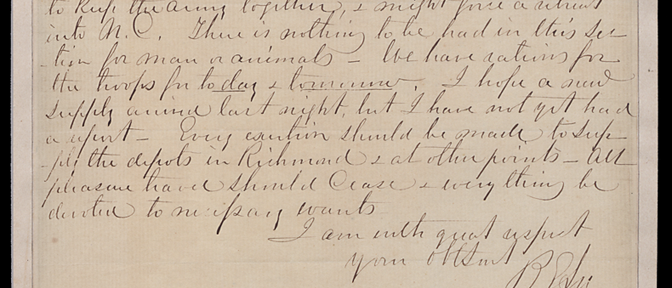 to keep the army together, & might force a retreat
into N.C. There is nothing to be had in this sec-
-tion for man or animals - We have rations for
the troops for today & tomorrow. I hope a new
supply arrived last night, but I have not yet had
a report - Every exertion should be made to sup-
-ply the depots in Richmond & at other points - All
pleasure travel should cease & everything be
devoted to necessary wants
I am with great respect
your obt svt
R E Lee